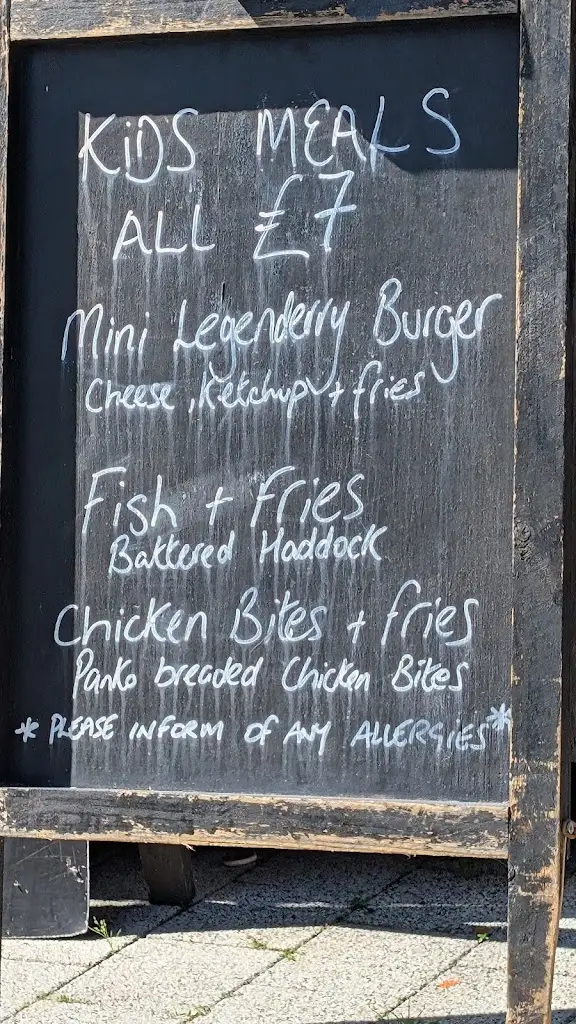 KiDS MEALS
ALL £7
Mini Legenderry Burger
Cheese, Ketchup + fries
Fish + Fries
Battered Haddock
Chicken Bites + fries
Panko breaded Chicken Bites
* PLEASE INFORM OF ANY ALLERGIES *